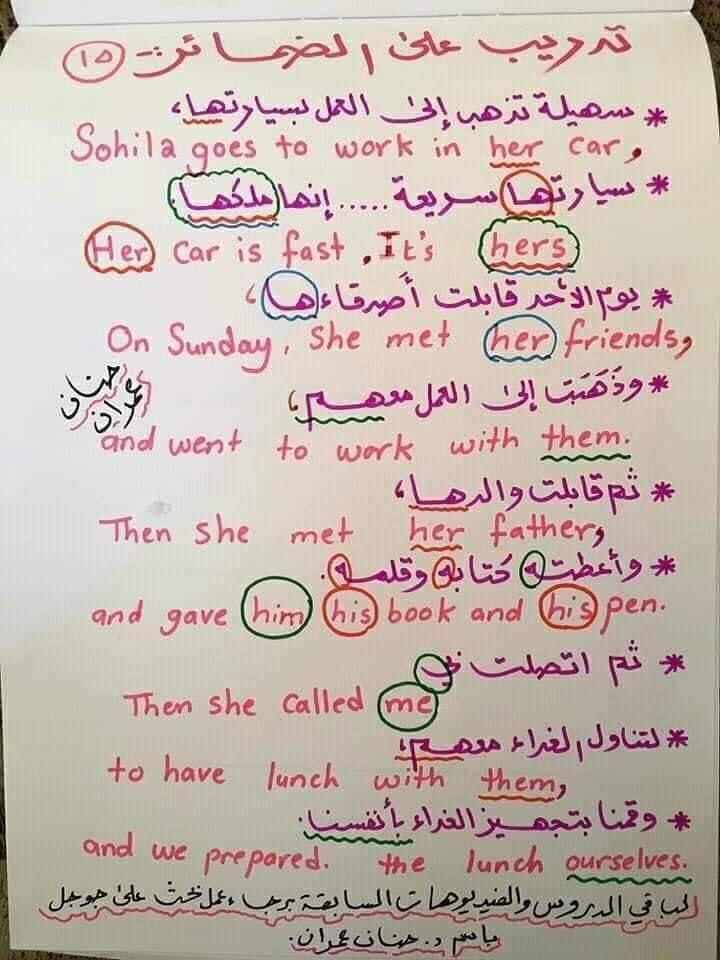 تدريب على الضمائر ١٥
* سهيلة تذهب إلى العمل بسيارتها،
Sohila goes to work in her car,
* سيارتها سريعة ..... إنها ملكها.
Her car is fast, It's hers
* يوم الأحد قابلت أصدقاءها،
On Sunday, She met her friends,
* وذَهَبَت إلى العمل معهم،
حنان عمران
and went to work with them.
* ثم قابلت والدها،
Then she met her father,
* وأعطته كتابه وقلمه.
and gave him his book and his pen.
* ثم اتصلت بي
Then she called me
* لتناول الغداء معهم،
to have lunch with them,
* وقمنا بتجهيز الغداء بأنفسنا.
and we prepared. the lunch ourselves.
لباقي الدروس والفيديوهات السابقة برجاء عمل بحث على جوجل
باسم د. حنان عمران.